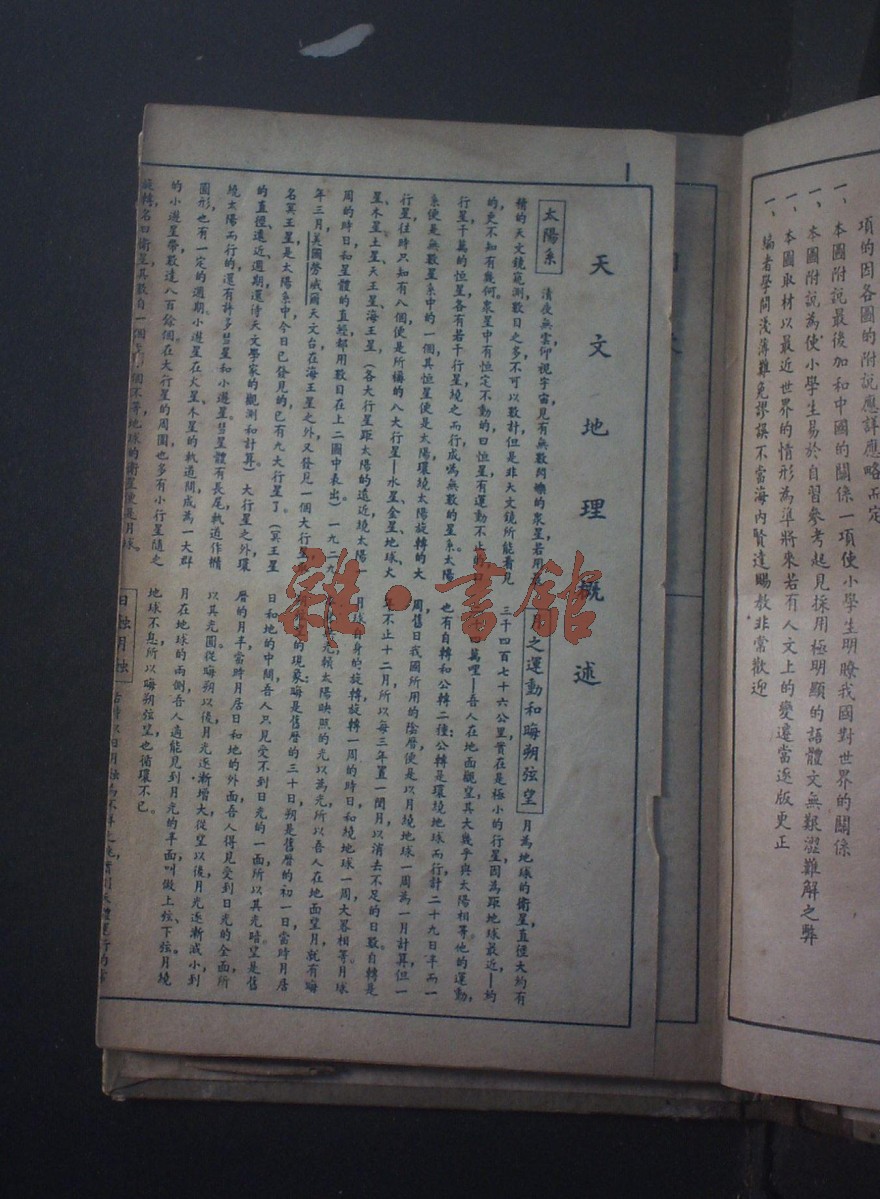 項的因各圖的附說應詳應略而定
一、本圖附說最後加和中國的關係一項使小學生明瞭我國對世界的關係
一、本圖附說為使小學生易於自習參考起見採用極明顯的語體文無艱澀難解之弊
一、本圖取材以最近世界的情形為準將來若有人文上的變遷當逐版更正
一、編者學問淺薄難免謬誤不當海內賢達賜教非常歡迎
天文地理概述
太陽系 清夜無雲仰視宇宙見有無數閃爍的衆星若用最
精的天文鏡窺測數目之多不可以數計但是非天文鏡所能看見
的更不知有幾何衆星中有恒定不動的曰恒星有運動不止的曰
行星千萬的恒星各有若干行星繞之而行成爲無數的星系太陽
系便是無數星系中的一個其恒星便是太陽環繞太陽旋轉的大
行星往時只知有八個便是所稱的八大行星—水星、金星、地球、火
星、木星、土星、天王星、海王星（各大行星距太陽的遠近繞太陽一
周的時日和星體的直經都用數目在上二圖中表出）一九二九
年三月，美國勞威爾天文台在海王星之外又發見一個大行星，
名冥王星是太陽系中今日已發見的已有九大行星了。（冥王星
的直徑遠近週期還待天文學家的觀測和計算）大行星之外環
繞太陽而行的還有許多彗星和小遊星彗星體有長尾軌道作橢
圓形也有一定的週期小遊星在火星木星的軌道間成為一大群
的小遊星帶數達八百餘個在大行星的周圍也多有小行星隨之
旋轉名曰衛星其數自一個至個不等地球的衛星便是月球。
月之運動和晦朔弦望 月為地球的衛星直徑大約有
三千四百七十六公里實在是極小的行星因為距地球最近—約
萬哩—吾人在地面觀望其大幾乎與太陽相等他的運動，
也有自轉和公轉二種：公轉是環繞地球而行計二十九日半而一
周舊日我國所用的陰曆便是以月繞地球一周為一月計算但一
年不止十二月所以每三年置一閏月以消去不足的日數自轉是
月球自身的旋轉旋轉一周的時日和繞地球一周大畧相等月球
光賴太陽映照的光以為光所以吾人在地面望月就有晦
的現象晦是舊曆的三十日朔是舊曆的初一日當時月居
日和地的中間吾人只見受不到日光的一面所以其光暗望是舊
曆的月半當時月居日和地的外面吾人得見受到日光的全面所
以其光圓從晦朔以後月光逐漸增大從望以後月光逐漸減小到
月在地球的兩側吾人適能見到月光的半面叫做上弦下弦月繞
地球不息所以晦朔弦望也循環不已。
日蝕月蝕
雜·書館